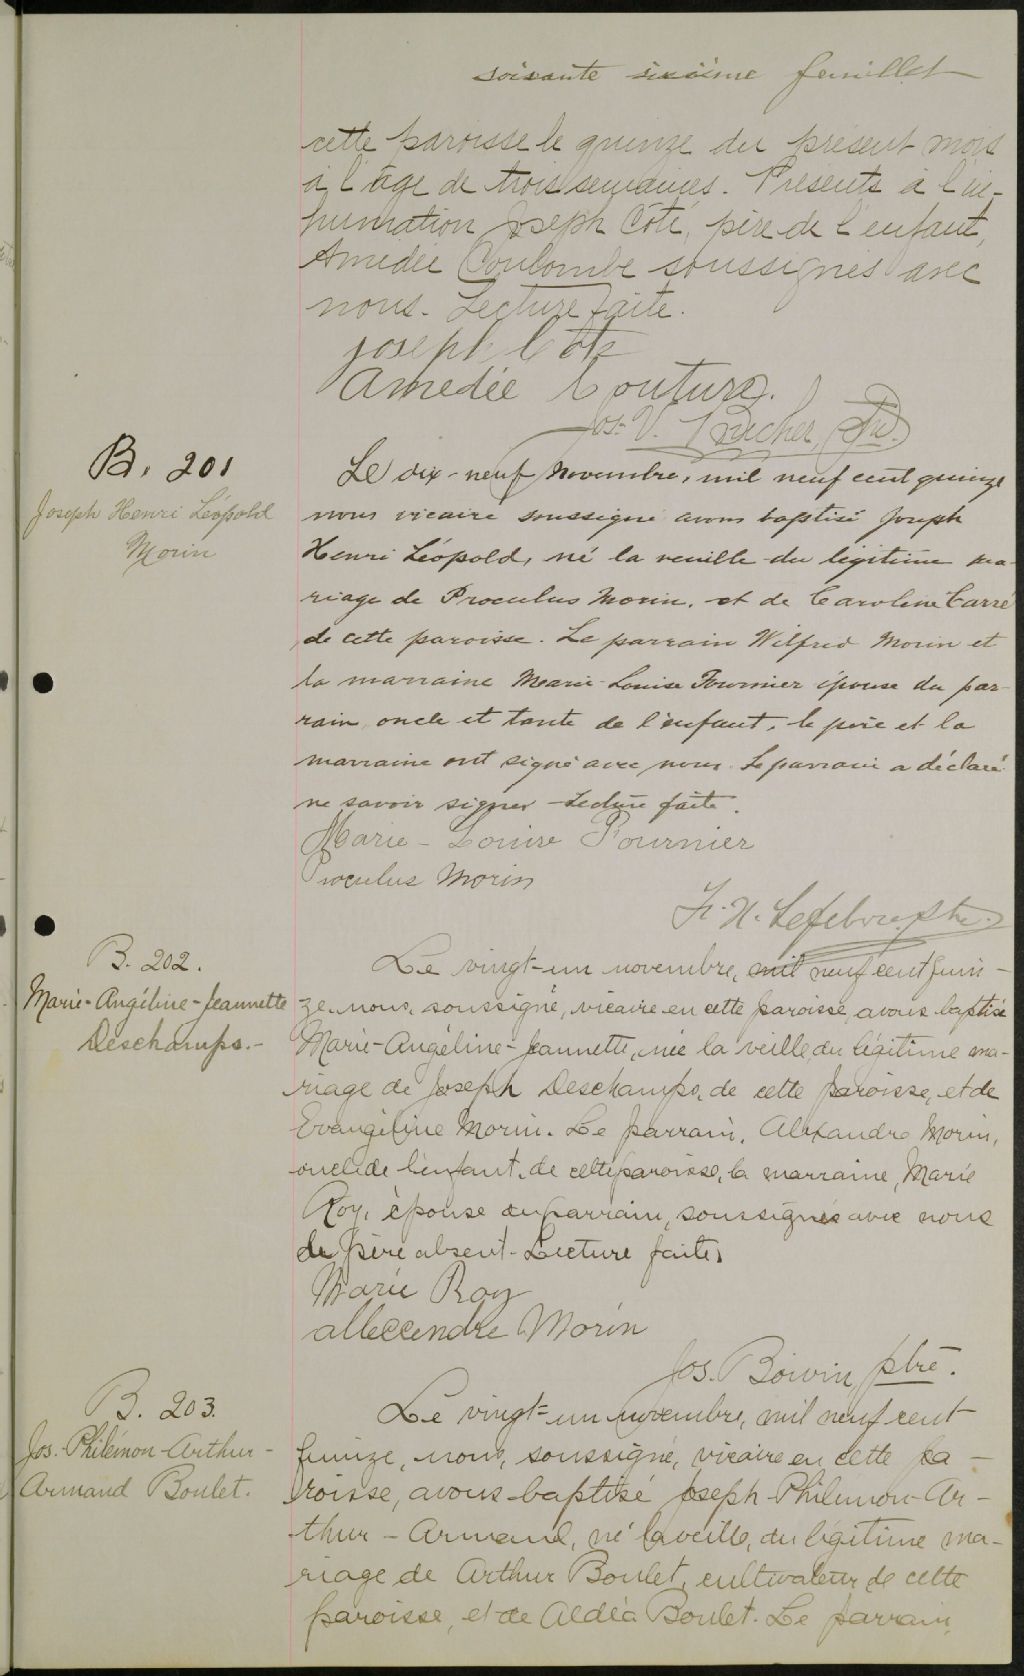 soixante sixième feuillet
cette paroisse le quinze du présent mois
à l'âge de trois semaines. Présents à l'in-
humation Joseph Côté, père de l'enfant,
Amédée Coulombe soussignés avec
nous. Lecture faite.
Joseph Côté
Amedée Couture.
Jos. V. Ptre.
B. 201
Joseph Henri Léopold
Morin
Le dix-neuf Novembre, mil neuf cent quinze
nous vicaire soussigné avons baptisé Joseph
Henri Léopold, né la veuille du légitime ma-
riage de Proculus Morin, et de Caroline Carré
de cette paroisse. Le parrain Wilfrid Morin et
la marraine Marie-Louise Fournier épouse du par-
rain, oncle et tante de l'enfant, le père et la
marraine ont signé avec nous. Le parrain a déclaré
ne savoir signer - Lecture faite.
Marie-Louise Fournier
Proculus Morin
F. X. Lefebvre, ptre.
B. 202.
Marie-Angéline-Jeannette
Deschamps.-
Le vingt-un novembre, mil neuf cent quin-
ze, nous, soussigné, vicaire en cette paroisse, avons baptisé
Marie-Angéline-Jeannette, née la veille, du légitime ma-
riage de Joseph Deschamps, de cette paroisse, et de
Evangéline Morin. Le parrain, Alexandre Morin,
oncle de l'enfant, de cette paroisse, la marraine, Marie
Roy, épouse du parrain, soussignés avec nous
de père absent. Lecture faite.
Marie Roy
alleccendre Morin
Jos. Boivin, ptre.
B. 203.
Jos. Philémon-Arthur-
Armand Boulet.
Le vingt-un novembre, mil neuf cent
quinze, nous, soussigné, vicaire en cette pa-
roisse, avons baptisé Joseph-Philémon-Ar-
thur-Armand, né la veille, du légitime ma-
riage de Arthur Boulet, cultivateur de cette
paroisse, et de Aldéa Boulet. Le parrain,